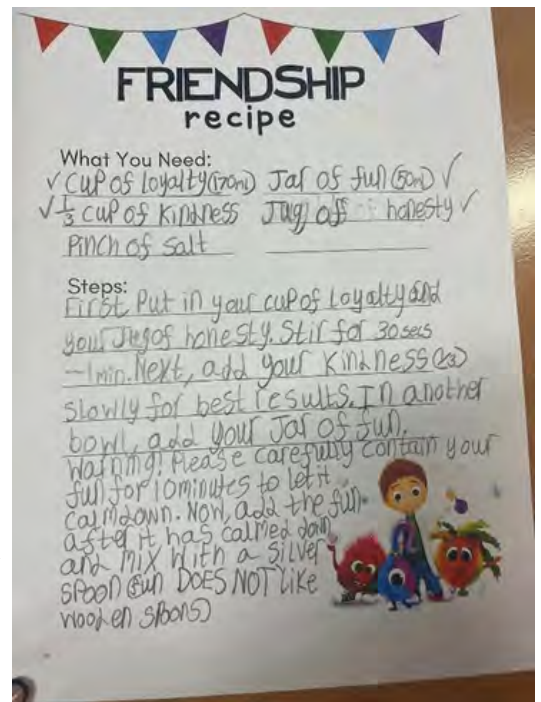 FRIENDSHIP
recipe
What You Need:
✓ Cup of loyalty (170ml) Jar of fun (50ml) ✓
✓ 1/3 cup of kindness Jug off honesty ✓
Pinch of salt
Steps:
First Put in your cup of loyalty and
your Jug of honesty. Stir for 30 secs
-1min. Next, add your kindness (1/3)
slowly for best results. In another
bowl, add your Jar of fun.
Warning! Please carefully contain your
fun for 10 minutes to let it
calm down. Now, add the fun
after it has calmed down
and mix with a silver
spoon (fun DOES NOT like
wooden spoons)